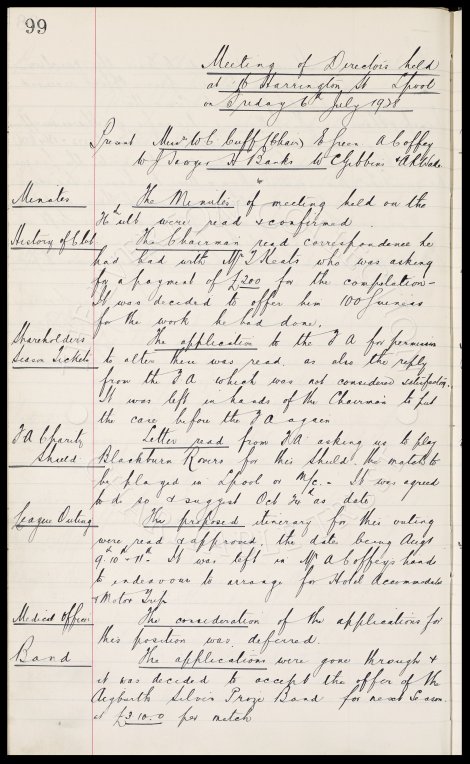 99
Meeting of Directors held
at 16 Harrington St Lpool
on Friday 6th July 1928
Present Messrs W C Cuff (Chair) E Green A Coffey
W J Sawyer H Banks W C Gibbins & A Wade
Minutes The Minutes of meeting held on the
ulto were read & confirmed.
History of Club The Chairman read correspondence he
had had with Mr T Keats who was asking
for a payment of £200 for the compilation –
It was decided to offer him 100 Guineas
for the work he had done.
Shareholders The application to the F A for permission
Season Tickets to alter these was read. as also the reply
from the F A which was not considered satisfactory.
It was left in hands of the Chairman to put
the case before the F A again
F A Charity Letter read from F A asking us to play
Shield Blackburn Rovers for this Shield. the match to
be played in Lpool or M/c. – It was agreed
to do so & suggest Oct 24th as date
League Outing The proposed itinerary for this outing
were read & approved, the dates being Augt
9th 10th & 11th. It was left in Mr A Coffeys hands
to endeavour to arrange for Hotel Accommodation
& Motor Trip
Medical Officer The consideration of the applications for
this position was deferred.
Band The applications were gone through &
it was decided to accept the offer of the
Aigburth Silver Prize Band for next Season.
at £3.10.0 per match